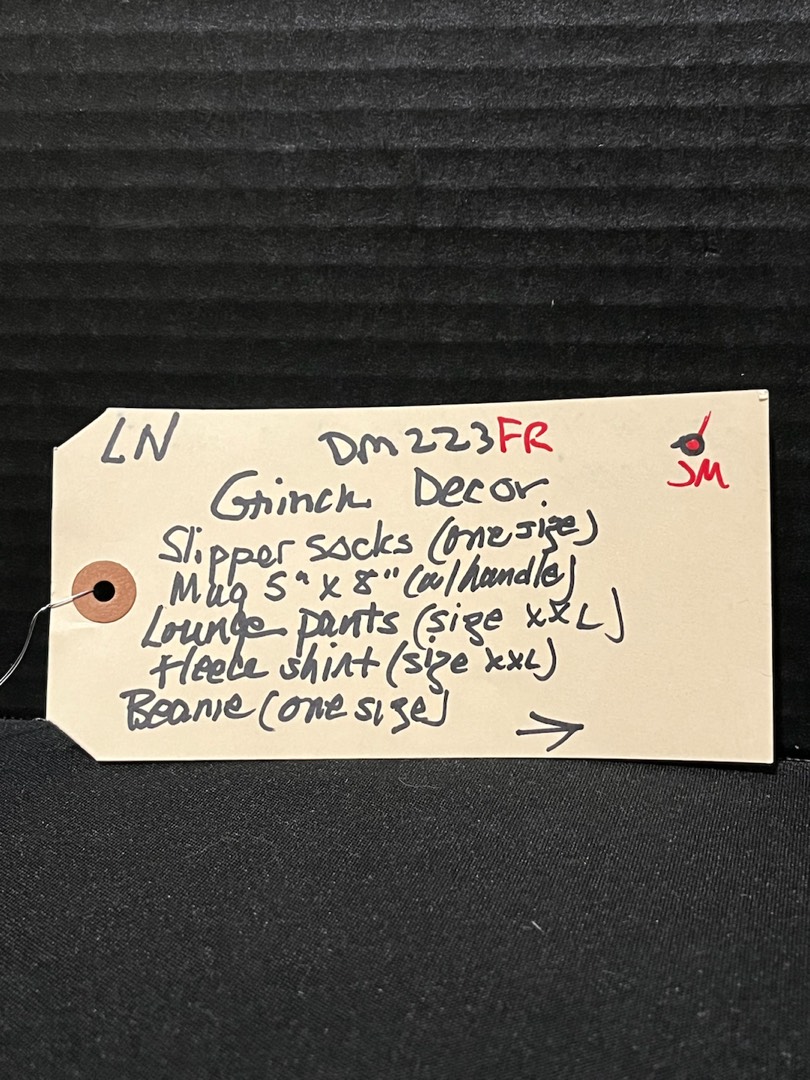 LN DM223FR
JM
Grinch Decor
Slipper socks (one size)
Mug 5" x 8" (w/handle)
Lounge pants (size xxL)
fleece shirt (size xxL)
Beanie (one size)